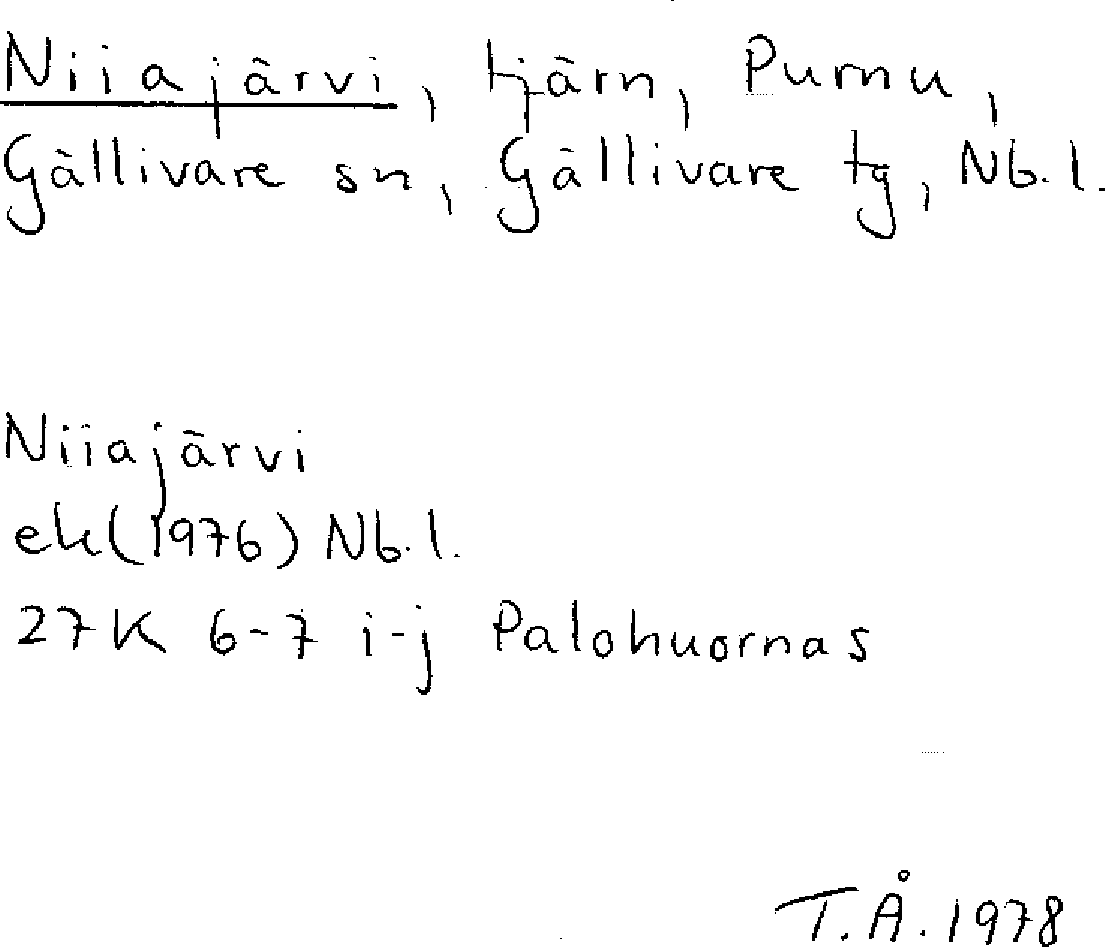 Niiajärvi, tjärn, Purnu,
Gällivare sn, Gällivare tg, Nb.l.
Niiajärvi
ek(1976) Nb.l.
27K 6-7 i-j Palohuornas
T.Å. 1978